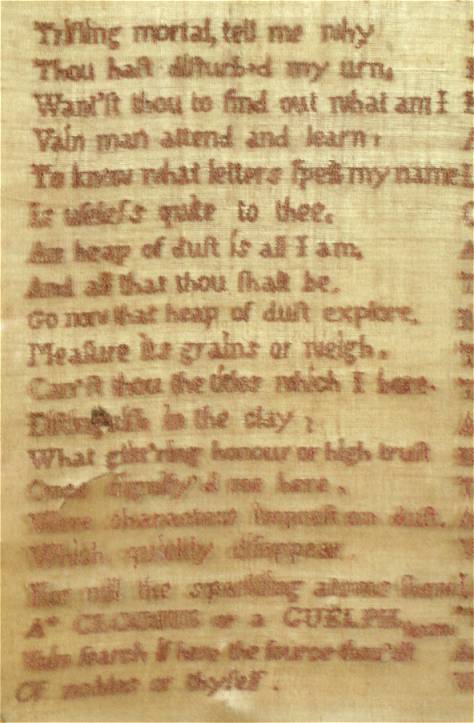 Trifling mortal, tell me why
Thou haſt diſturb'd my urn,
Want'ſt thou to find out what am I
Vain man attend and learn,
To know what letters ſpell my name
Is uſeleſs quite to thee.
An heap of duſt is all I am,
And all that thou ſhalt be.
Go now that heap of duſt explore,
Meaſure its grains or weigh.
Can'ſt thou the titles which I bore.
Diſtinguiſh in the clay ?
What glitt'ring honour or high truſt
Once dignify'd me here.
Were characters impreſt on duſt,
Which quickly diſappear.
Nor will the sparkling atoms
A or a GUELPH,
Vain ſearch if here the ſource thou'dſt
Of or thyſelf.